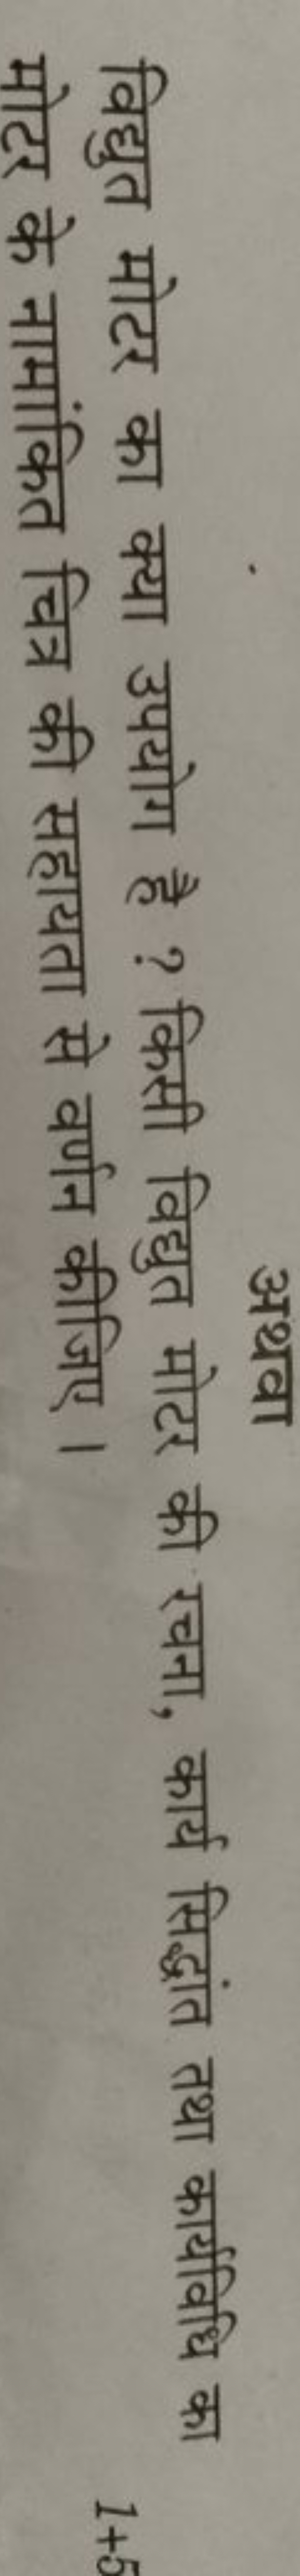 अथवा
विद्युत मोटर का क्या उपयोग है ? किसी विद्युत मोटर की रचना, कार्य सिद्धांत तथा कार्यविधि का
मोटर के नामांकित चित्र की सहायता से वर्णन कीजिए । 1+5